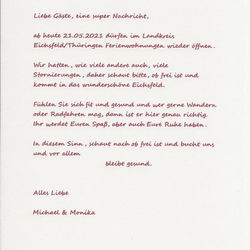 Liebe Gäste, eine super Nachricht,
ab heute 21.05.2021 dürfen im Landkreis
Eichsfeld/Thüringen Ferienwohnungen wieder öffnen.
Wir hatten, wie viele andere auch, viele
Stornierungen, daher schaut bitte, ob frei ist und
kommt in das wunderschöne Eichsfeld.
Fühlen Sie sich fit und gesund und wer gerne Wandern
oder Radfahren mag, dann ist er hier genau richtig.
Ihr werdet Euren Spaß, aber auch Eure Ruhe haben.
In diesem Sinn, schaut nach ob frei ist und bucht uns
und vor allem
bleibt gesund.
Alles Liebe
Michael & Monika